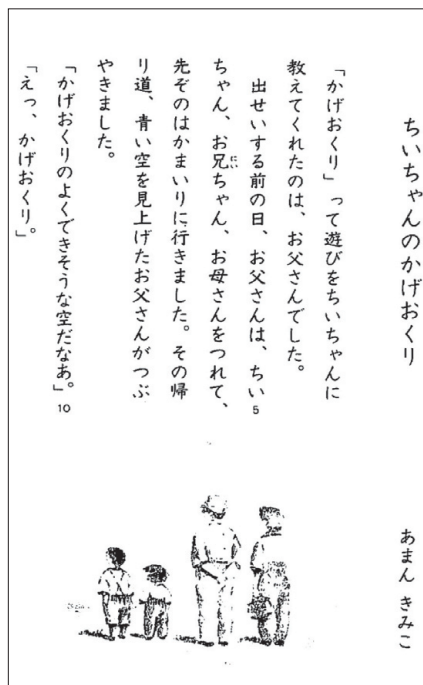 ちいちゃんのかげおくり
あまん きみこ
「かげおくり」って遊びをちいちゃんに
教えてくれたのは、お父さんでした。
出せいする前の日、お父さんは、ちい
5
ちゃん、お兄ちゃん、お母さんをつれて、
にい
先ぞのはかまいりに行きました。その帰
り道、青い空を見上げたお父さんがつぶ
やきました。
「かげおくりのよくできそうな空だなあ。」
10
「えっ、かげおくり。」